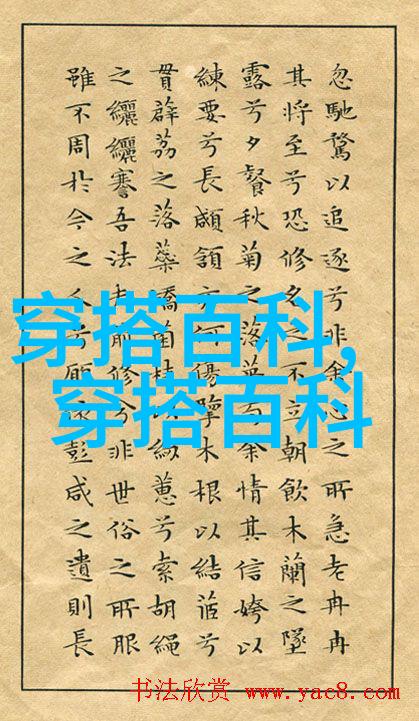 忽馳騖以追逐兮非余心之所急老冉冉
其將至兮恐修名之不立朝飲木蘭之墜
露兮夕餐秋菊之落英苟余情其信姱以
練要兮長顑頷亦何傷擥木根以結茝兮
貫薜荔之落蘂矯菌桂以紉蕙兮索胡繩
之纚纚謇吾法夫前修兮非世俗之所服
雖不周於今之人兮願依彭咸之遺則長
穿搭百科,
穿搭百科
书法欣赏 www.yac8.com